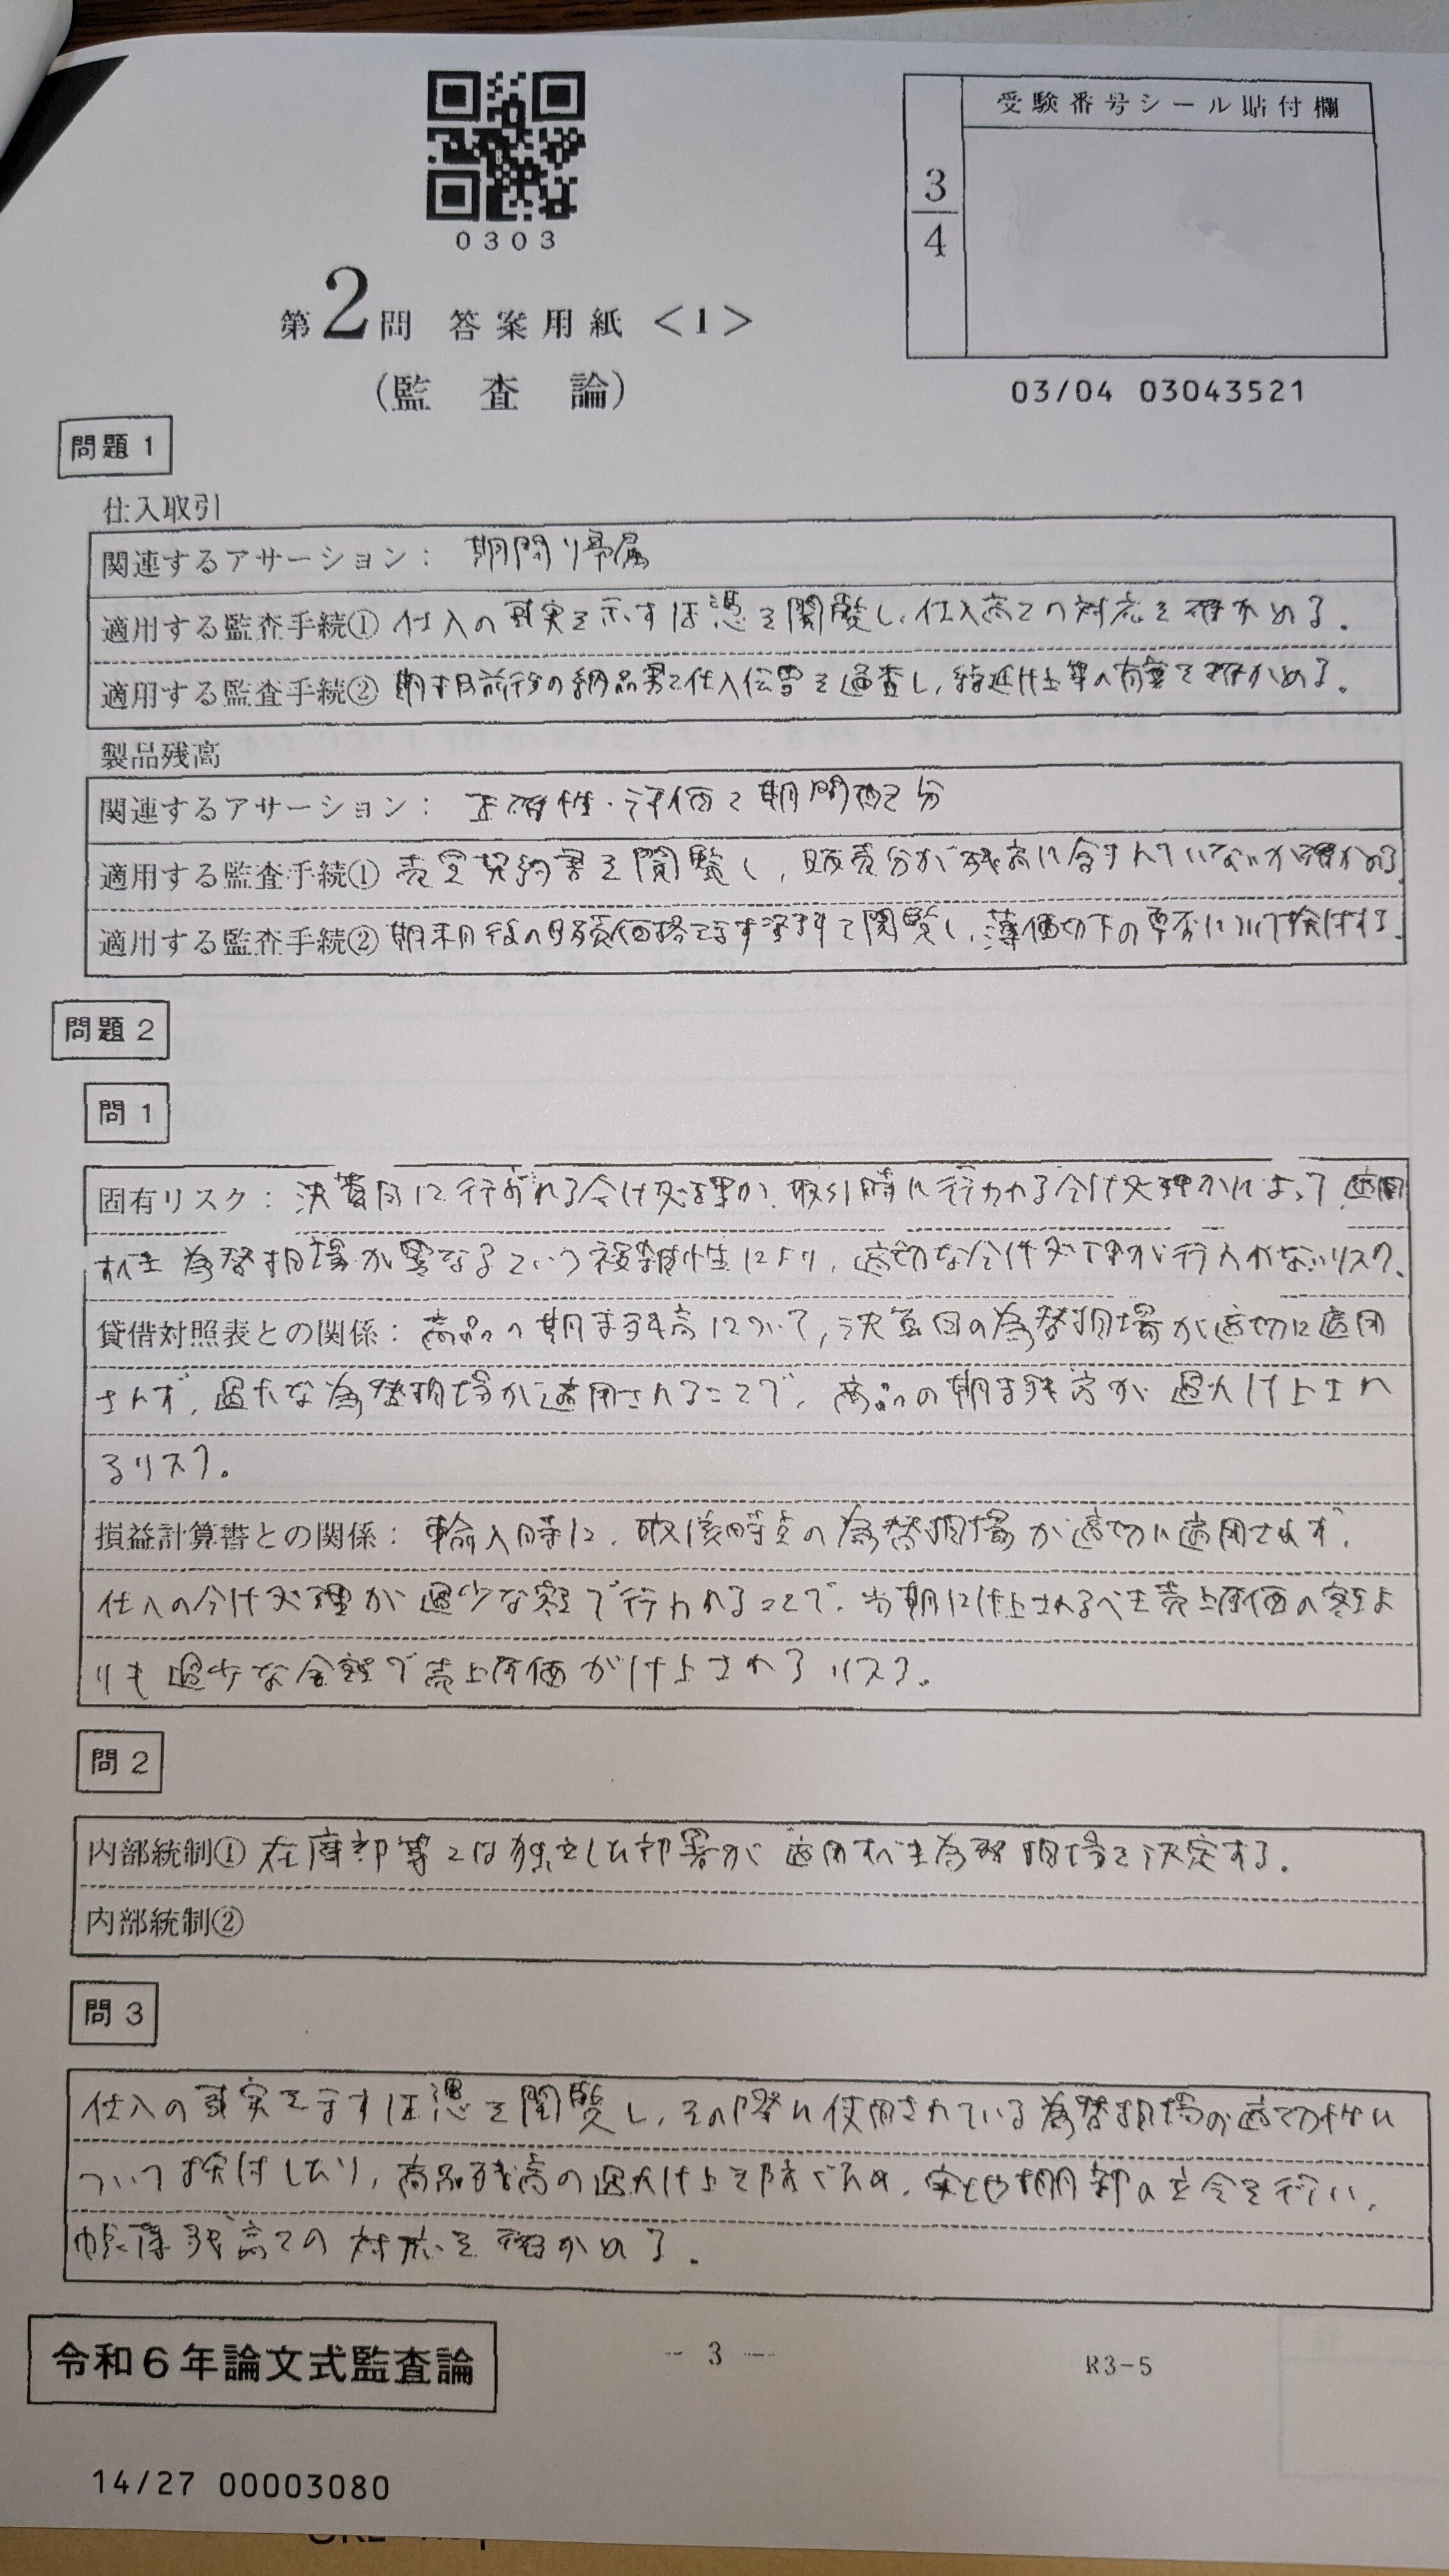 0303
受験番号シール貼付欄
3
4
第2問 答案用紙 <1>
(監 査 論)
03/04 03043521
問題1
仕入取引
関連するアサーション: 期間帰属
適用する監査手続① 仕入の事実を示す証憑を閲覧し、仕入高との対応を確かめる。
適用する監査手続② 期末日前後の納品書と仕入伝票を通査し、繰延計上等の有無を確かめる。
製品残高
関連するアサーション: 正確性・評価と期間配分
適用する監査手続① 売買契約書を閲覧し、販売分が残高に含まれていないか確かめる。
適用する監査手続② 期末日後の販売価格を示す資料を閲覧し、簿価切下の要否について検討する。
問題2
問1
固有リスク: 決算時に行われる仕訳処理か、取引時に行われる仕訳処理かによって、適用
すべき為替相場が異なるという複雑性により、適切な仕訳処理が行われないリスク。
貸借対照表との関係: 商品の期末残高について、決算日の為替相場が適切に適用
されず、過大な為替相場が適用されることで、商品の期末残高が過大計上され
るリスク。
損益計算書との関係: 輸入時に、取得時点の為替相場が適切に適用されず、
仕入の仕訳処理が過少な額で行われることで、当期に計上されるべき売上原価の額よ
りも過少な金額で売上原価が計上されるリスク。
問2
内部統制① 在庫部等とは独立した部署が適用すべき為替相場を決定する。
内部統制②
問3
仕入の事実を示す証憑を閲覧し、その際に使用されている為替相場の適切性に
ついて検討したり、商品残高の過大計上を防ぐため、実地棚卸の立会を行い、
帳簿残高との対応を確かめる。
令和6年論文式監査論
- 3 -
R3-5
14/27 00003080